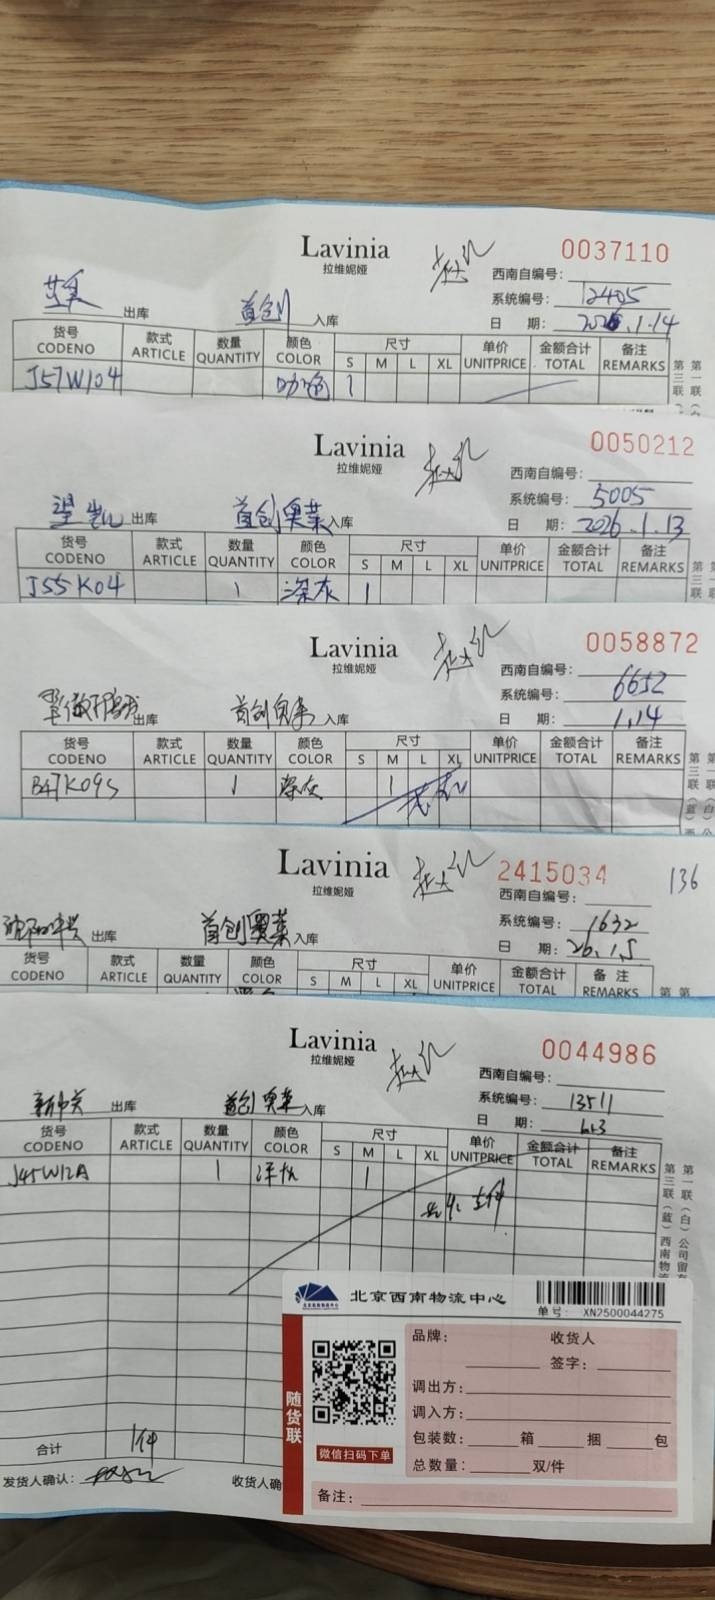 Lavinia
拉维妮娅
0037110
西南自编号:
系统编号: 12405
日 期: 2026.1.14
出库 首创 入库
货号 款式 数量 颜色 尺寸 单价 金额合计 备注
CODENO ARTICLE QUANTITY COLOR S M L XL UNITPRICE TOTAL REMARKS
J57W104 咖色 1
第一联
第三联
Lavinia
拉维妮娅
0050212
西南自编号:
系统编号: 5005
日 期: 2026.1.13
望凯 出库 首创奥莱 入库
货号 款式 数量 颜色 尺寸 单价 金额合计 备注
CODENO ARTICLE QUANTITY COLOR S M L XL UNITPRICE TOTAL REMARKS
J55K04 1 深灰 1
第三联
Lavinia
拉维妮娅
0058872
西南自编号:
系统编号: 6652
日 期: 1.14
出库 首创奥莱 入库
货号 款式 数量 颜色 尺寸 单价 金额合计 备注
CODENO ARTICLE QUANTITY COLOR S M L XL UNITPRICE TOTAL REMARKS
B47K09S 1 深灰 1
第三联(蓝)西
第一联(白)公
Lavinia
拉维妮娅
2415034
136
西南自编号:
系统编号: 1632
日 期: 26.1.5
出库 首创奥莱 入库
货号 款式 数量 颜色 尺寸 单价 金额合计 备注
CODENO ARTICLE QUANTITY COLOR S M L XL UNITPRICE TOTAL REMARKS
第 第
Lavinia
拉维妮娅
0044986
西南自编号:
系统编号: 13511
日 期:
新中关 出库 首创奥莱 入库
货号 款式 数量 颜色 尺寸 单价 金额合计 备注
CODENO ARTICLE QUANTITY COLOR S M L XL UNITPRICE TOTAL REMARKS
J45W12A 1 1
第一联(白)公司留存
第三联(蓝)西南物流
合计 1件
发货人确认:
收货人确
北京西南物流中心
单号: XN2500044275
随货联
微信扫码下单
品牌: 收货人
签字:
调出方:
调入方:
包装数: 箱 捆 包
总数量: 双/件
备注: